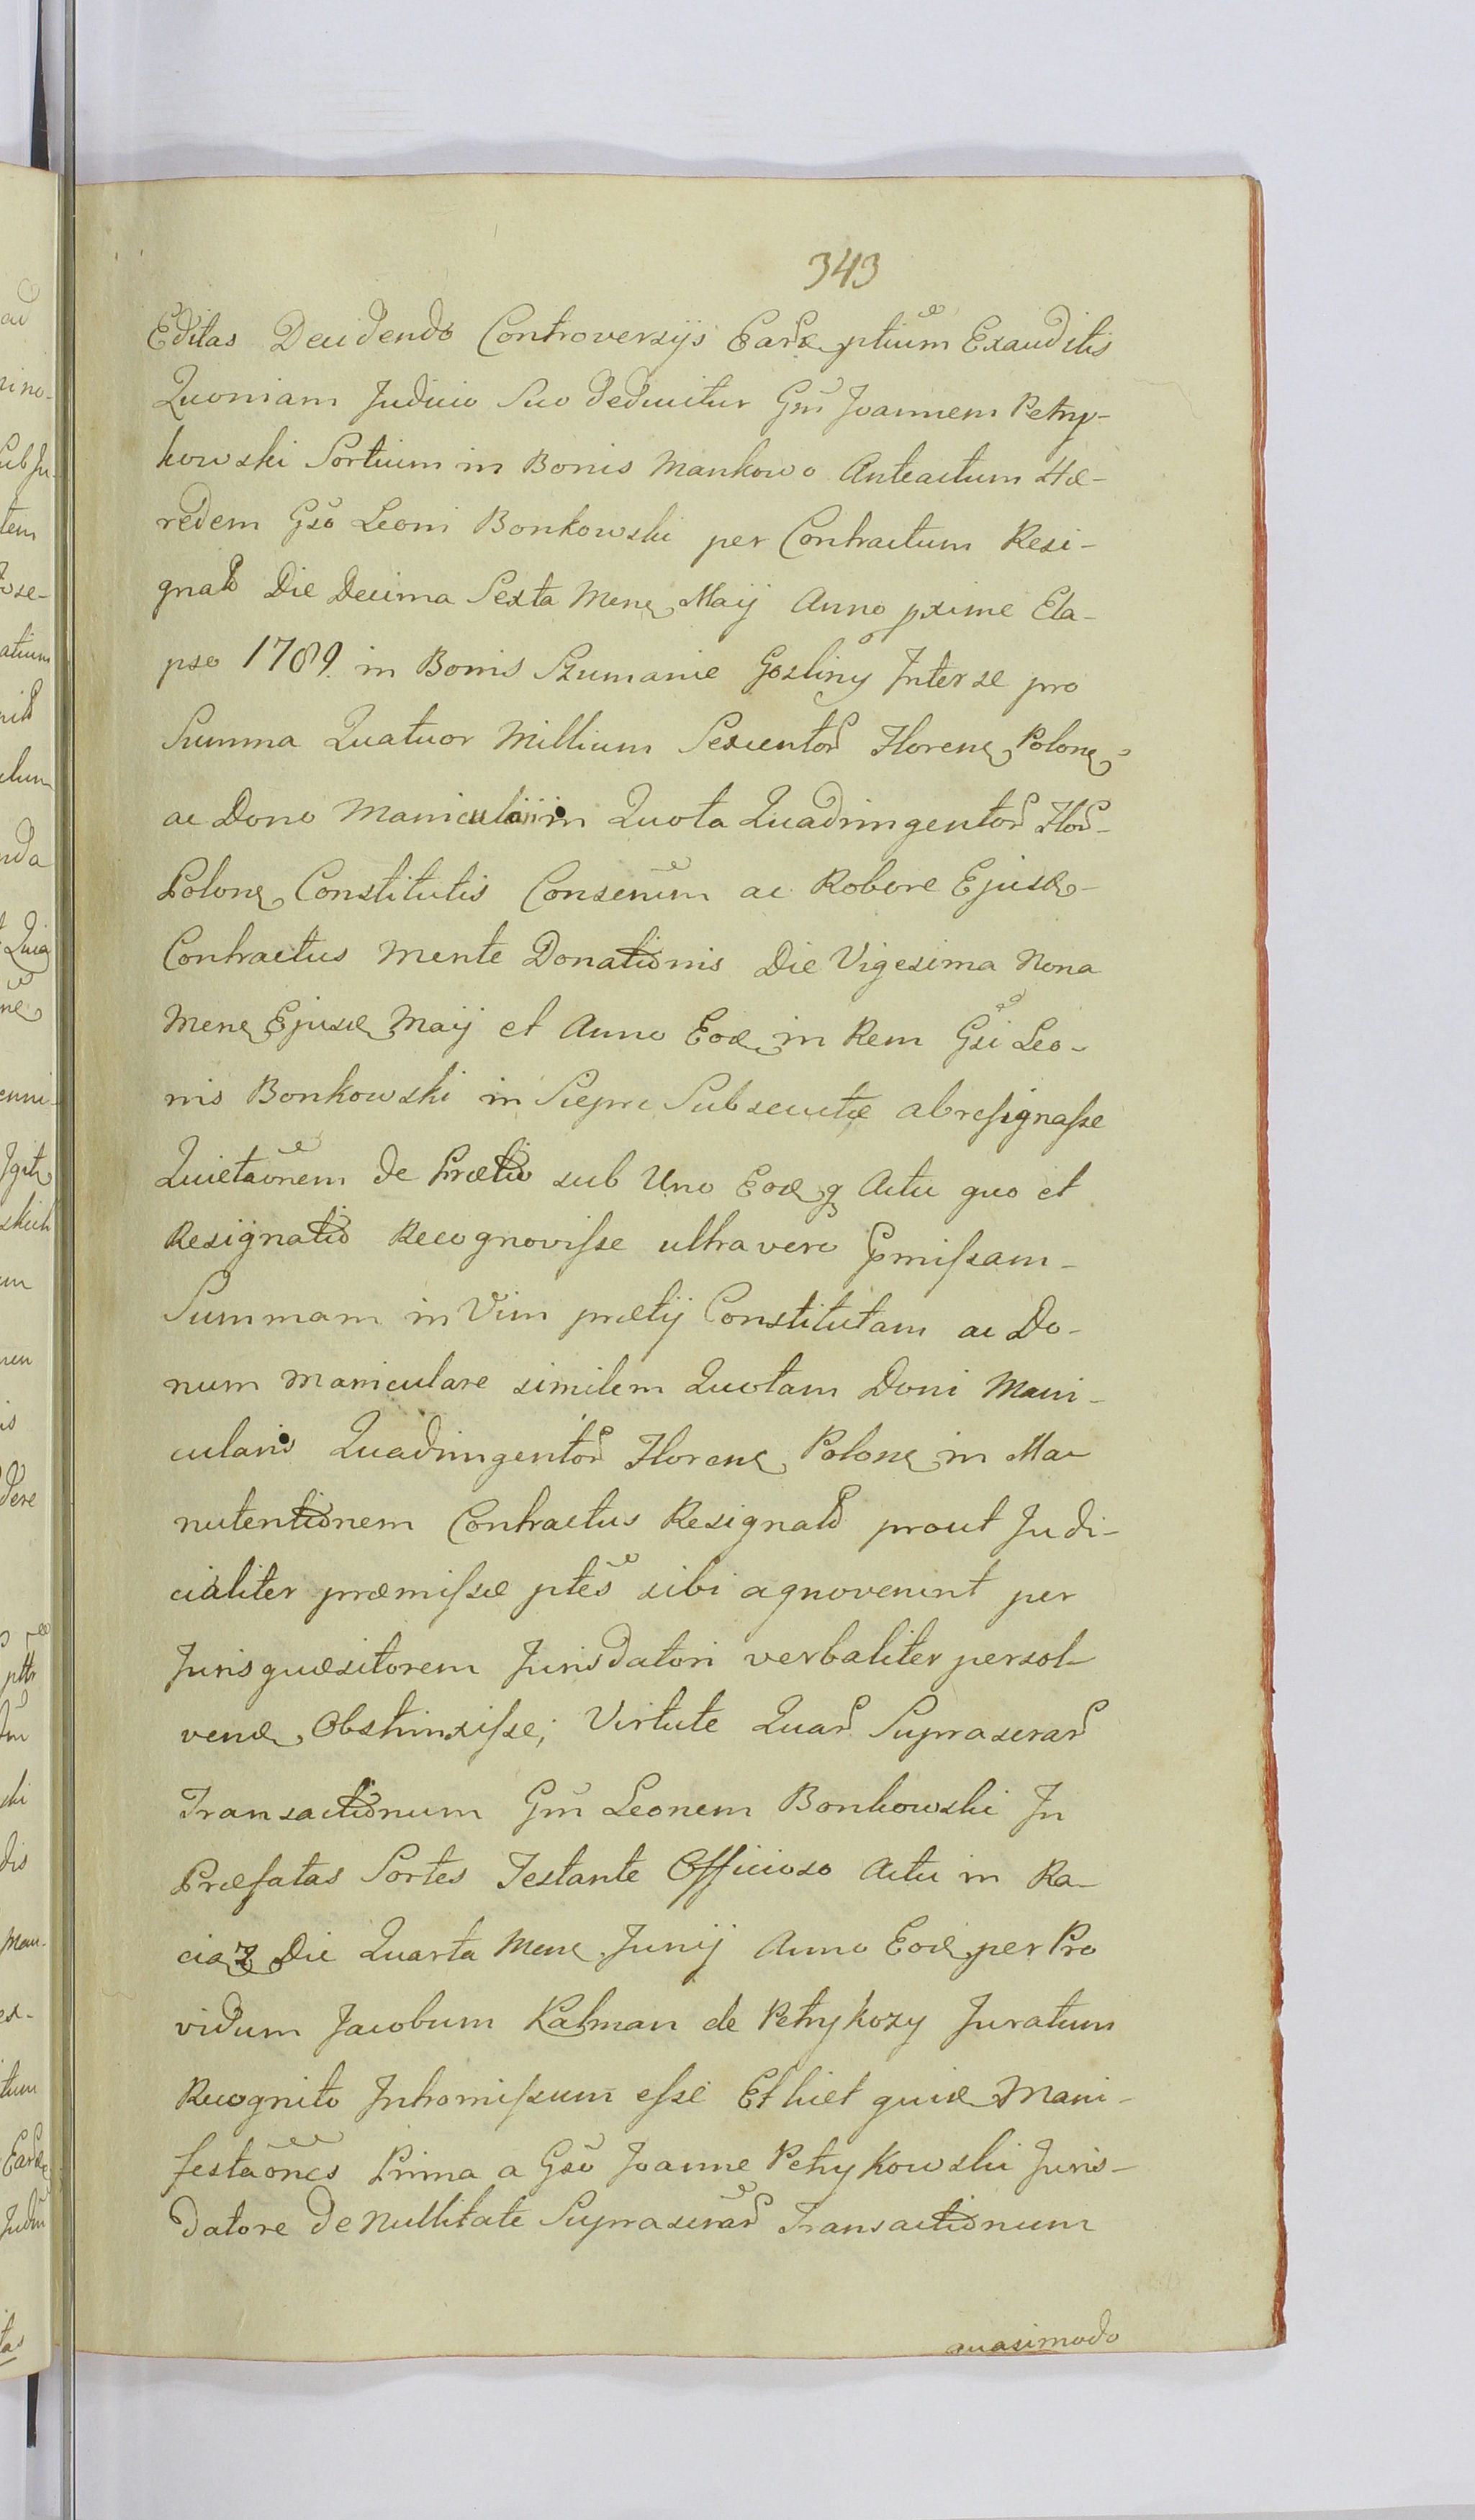 343
Editas Decidendo Controversijs Earde ptium Exauditis
Quoniam Judicio Suo deducitur Gsm Joannem Petry-
kowski Sortium in Bonis Mankowo Anteactum Hæ-
redem Gso Leoni Bonkowski per Contractum Resi-
gnatō Die Decima Sexta Mens Maij Anno pxime Ela-
pso 1789. in Bonis Szumanie Gozliny Inter se pro
Summa Quatuor Millium Sexcentor Floren Polon
ac Dono Maniculari in Quota Quadringentor Flor
Polon Constitutis Consensum ac Robore Ejusd
Contractus mente Donationis Die Vigesima Nona
Mens Ejusd Maij et Anno Eod in Rem Gsi Leo-
nis Bonkowski in Sieprc Subsecutæ abresignasse
Quietaõnem de Prætio sub Uno Eodq Actu quo et
Resignatio Recognovisse ultra vero Pmissam
Summam in Vim prætij Constitutam ac Do-
num maniculare similem Quotam Doni Mani-
cularis Quadringentor Floren Polon in Ma-
nutentionem Contractus Resignatō prout Judi-
cialiter præmissæ ptes sibi agnoverint per
Jurisquæsitorem Jurisdatori verbaliter persol-
vend Obstrinxisse; Virtute Quar Suprascrar
Transactionum Gsm Leonem Bonkowski In
Præfatas Sortes Testante Officioso Actu in Ra-
ciąz Die Quarta Mens Junij Anno Eod per Pro
vidum Jacobum Kalman de Petrykozy Juratum
Recognito Intromissum esse Et licet quid Mani-
festaõnes Prima a Gso Joanne Petrykowski Juris-
datore De nullitate Suprascrar Transactionum
quasimodo